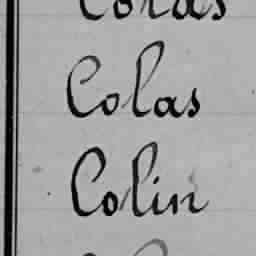 Colas
Colin